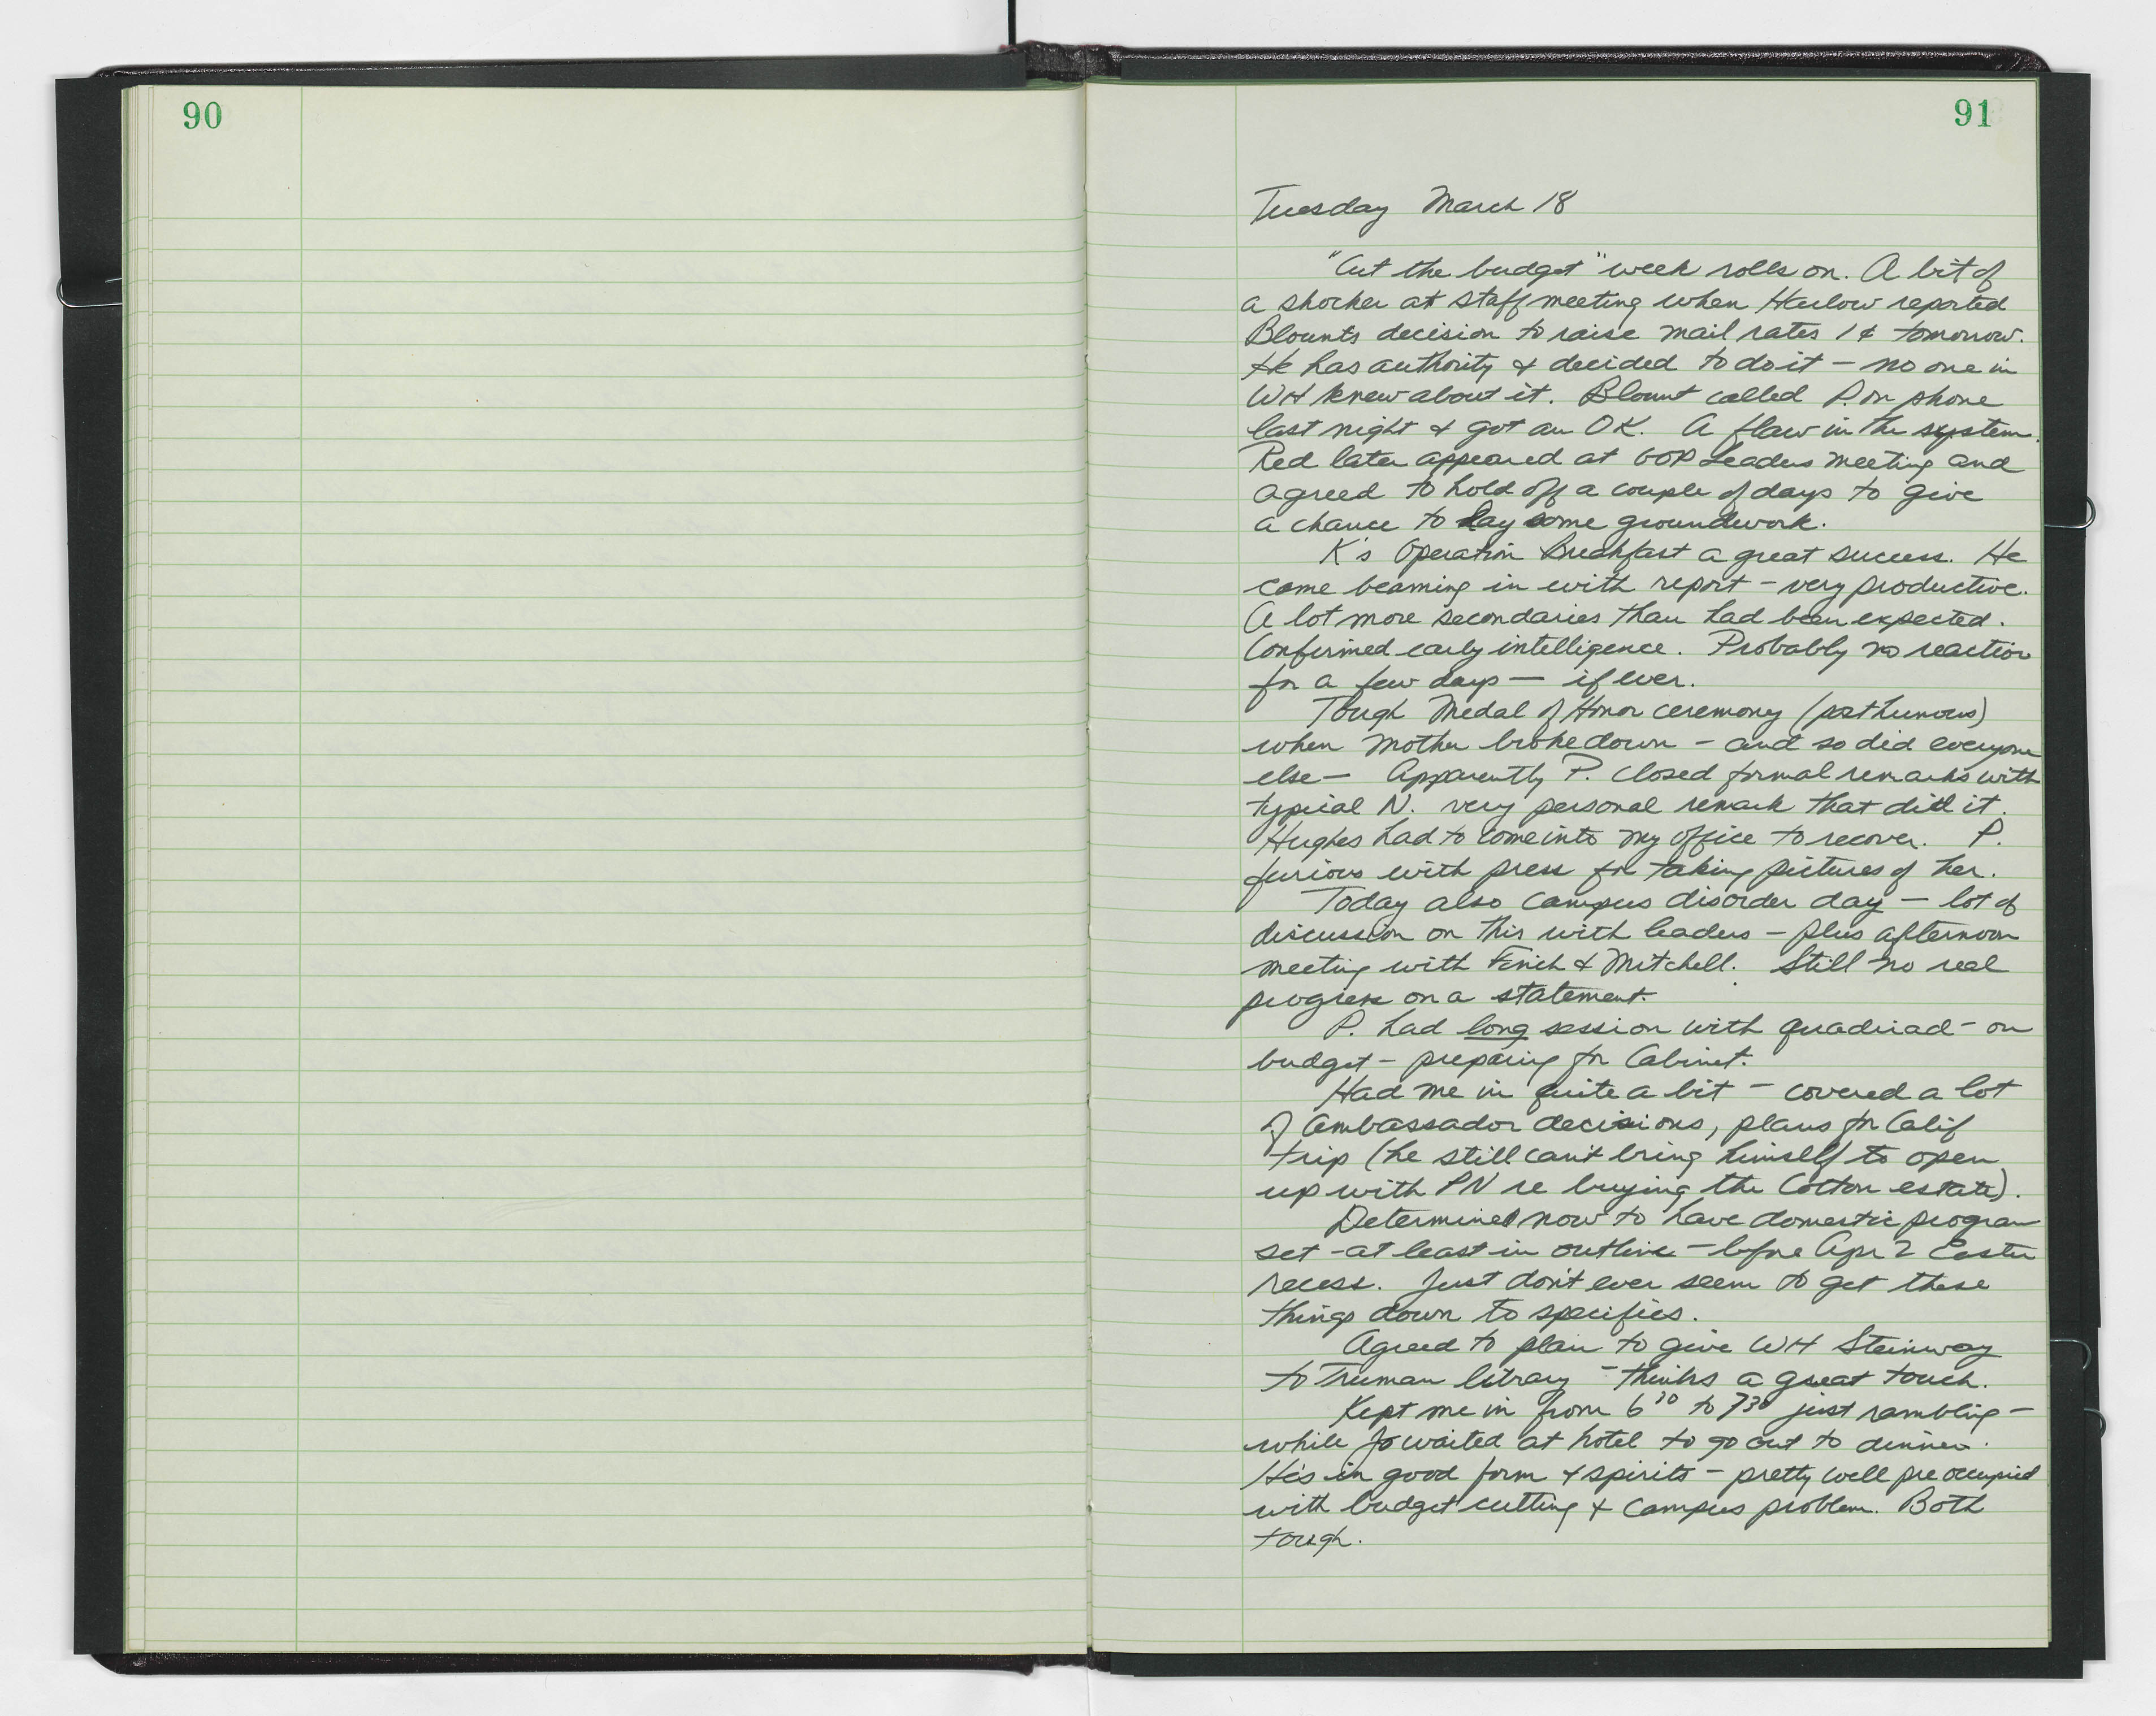 90
91
Tuesday March 18
"Cut the budget" week rolls on. A bit of
a shocker at staff meeting when Harlow reported
Blounts decision to raise mail rates 1¢ tomorrow.
He has authority & decided to do it - no one in
WH knew about it. Blount called P. on phone
last night & got an OK. A flaw in the system.
Red later appeared at GOP Leaders meeting and
agreed to hold off a couple of days to give
a chance to lay some groundwork.
K's Operation Breakfast a great success. He
came beaming in with report - very productive.
A lot more secondaries than had been expected.
Confirmed early intelligence. Probably no reaction
for a few days — if ever.
Tough Medal of Honor ceremony (posthumous)
when mother broke down - and so did everyone
else — Apparently P. closed formal remarks with
typical N. very personal remark that did it.
Hughes had to come into my office to recover. P.
furious with press for taking pictures of her.
Today also campus disorder day — lot of
discussion on this with leaders - plus afternoon
meeting with Finch & Mitchell. Still no real
progress on a statement.
P. had long session with quadriad - on
budget - preparing for Cabinet.
Had me in quite a bit - covered a lot
of Ambassador decisions, plans for Calif
trip (he still can't bring himself to open
up with PN re buying the Cotton estate).
Determined now to have domestic program
set - at least in outline - before Apr 2 Easter
recess. Just don't ever seem to get these
things down to specifics.
Agreed to plan to give WH Steinway
to Truman library - thinks a great touch.
Kept me in from 6 30 to 7 30 just rambling -
while Jo waited at hotel to go out to dinner.
He's in good form & spirits - pretty well preoccupied
with budget cutting & campus problem. Both
tough.